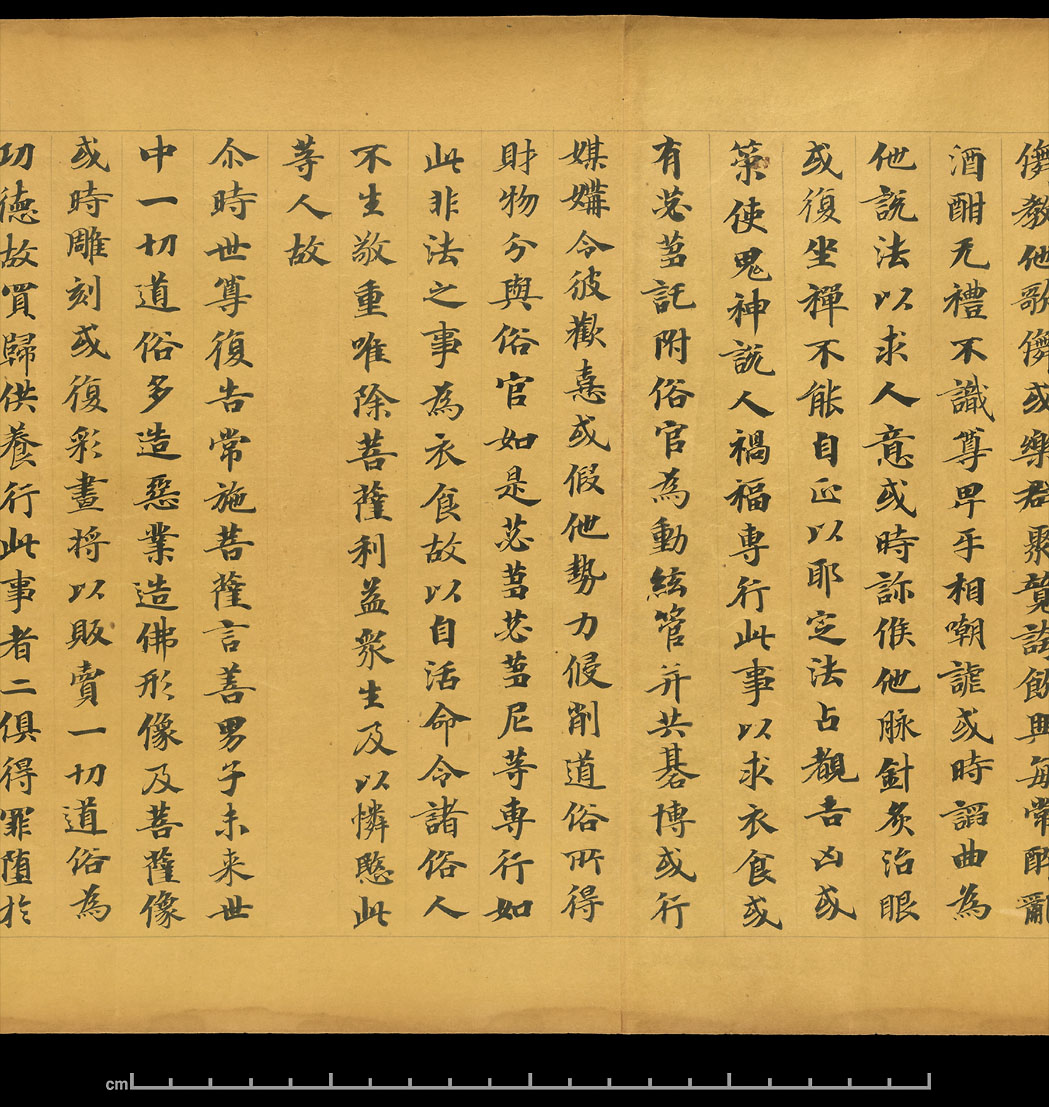 儛教他歌儛或樂群聚𮗚謔飲興每常醉亂
酒酣无禮不識尊卑乎相嘲謔或時謟曲為
他說法以求人意或時詠候他脉針灸治眼
或復坐禪不能自正以耶定法占覩吉凶或
策使鬼神說人禍福專行此事以求衣食或
有苾蒭託附俗官為動絃管并共碁博或行
媒媾令彼歡憙或假他勢力侵削道俗所得
財物分與俗官如是苾蒭苾蒭尼等專行如
此非法之事為衣食故以自活命令諸俗人
不生敬重唯除菩薩利益衆生及以憐愍此
等人故
尒時世尊復告常施菩薩言善男子未来世
中一切道俗多造惡業造佛形像及菩薩像
或時雕刻或復彩畫将以販賣一切道俗為
功德故買歸供養行此事者二俱得罪堕於